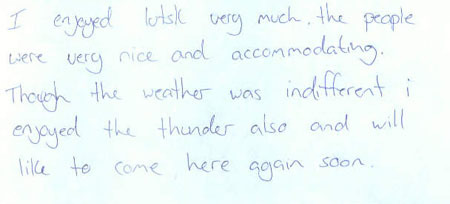 I enjoyed lutsk very much, the people
were very nice and accommodating.
Though the weather was indifferent i
enjoyed the thunder also and will
like to come here again soon.